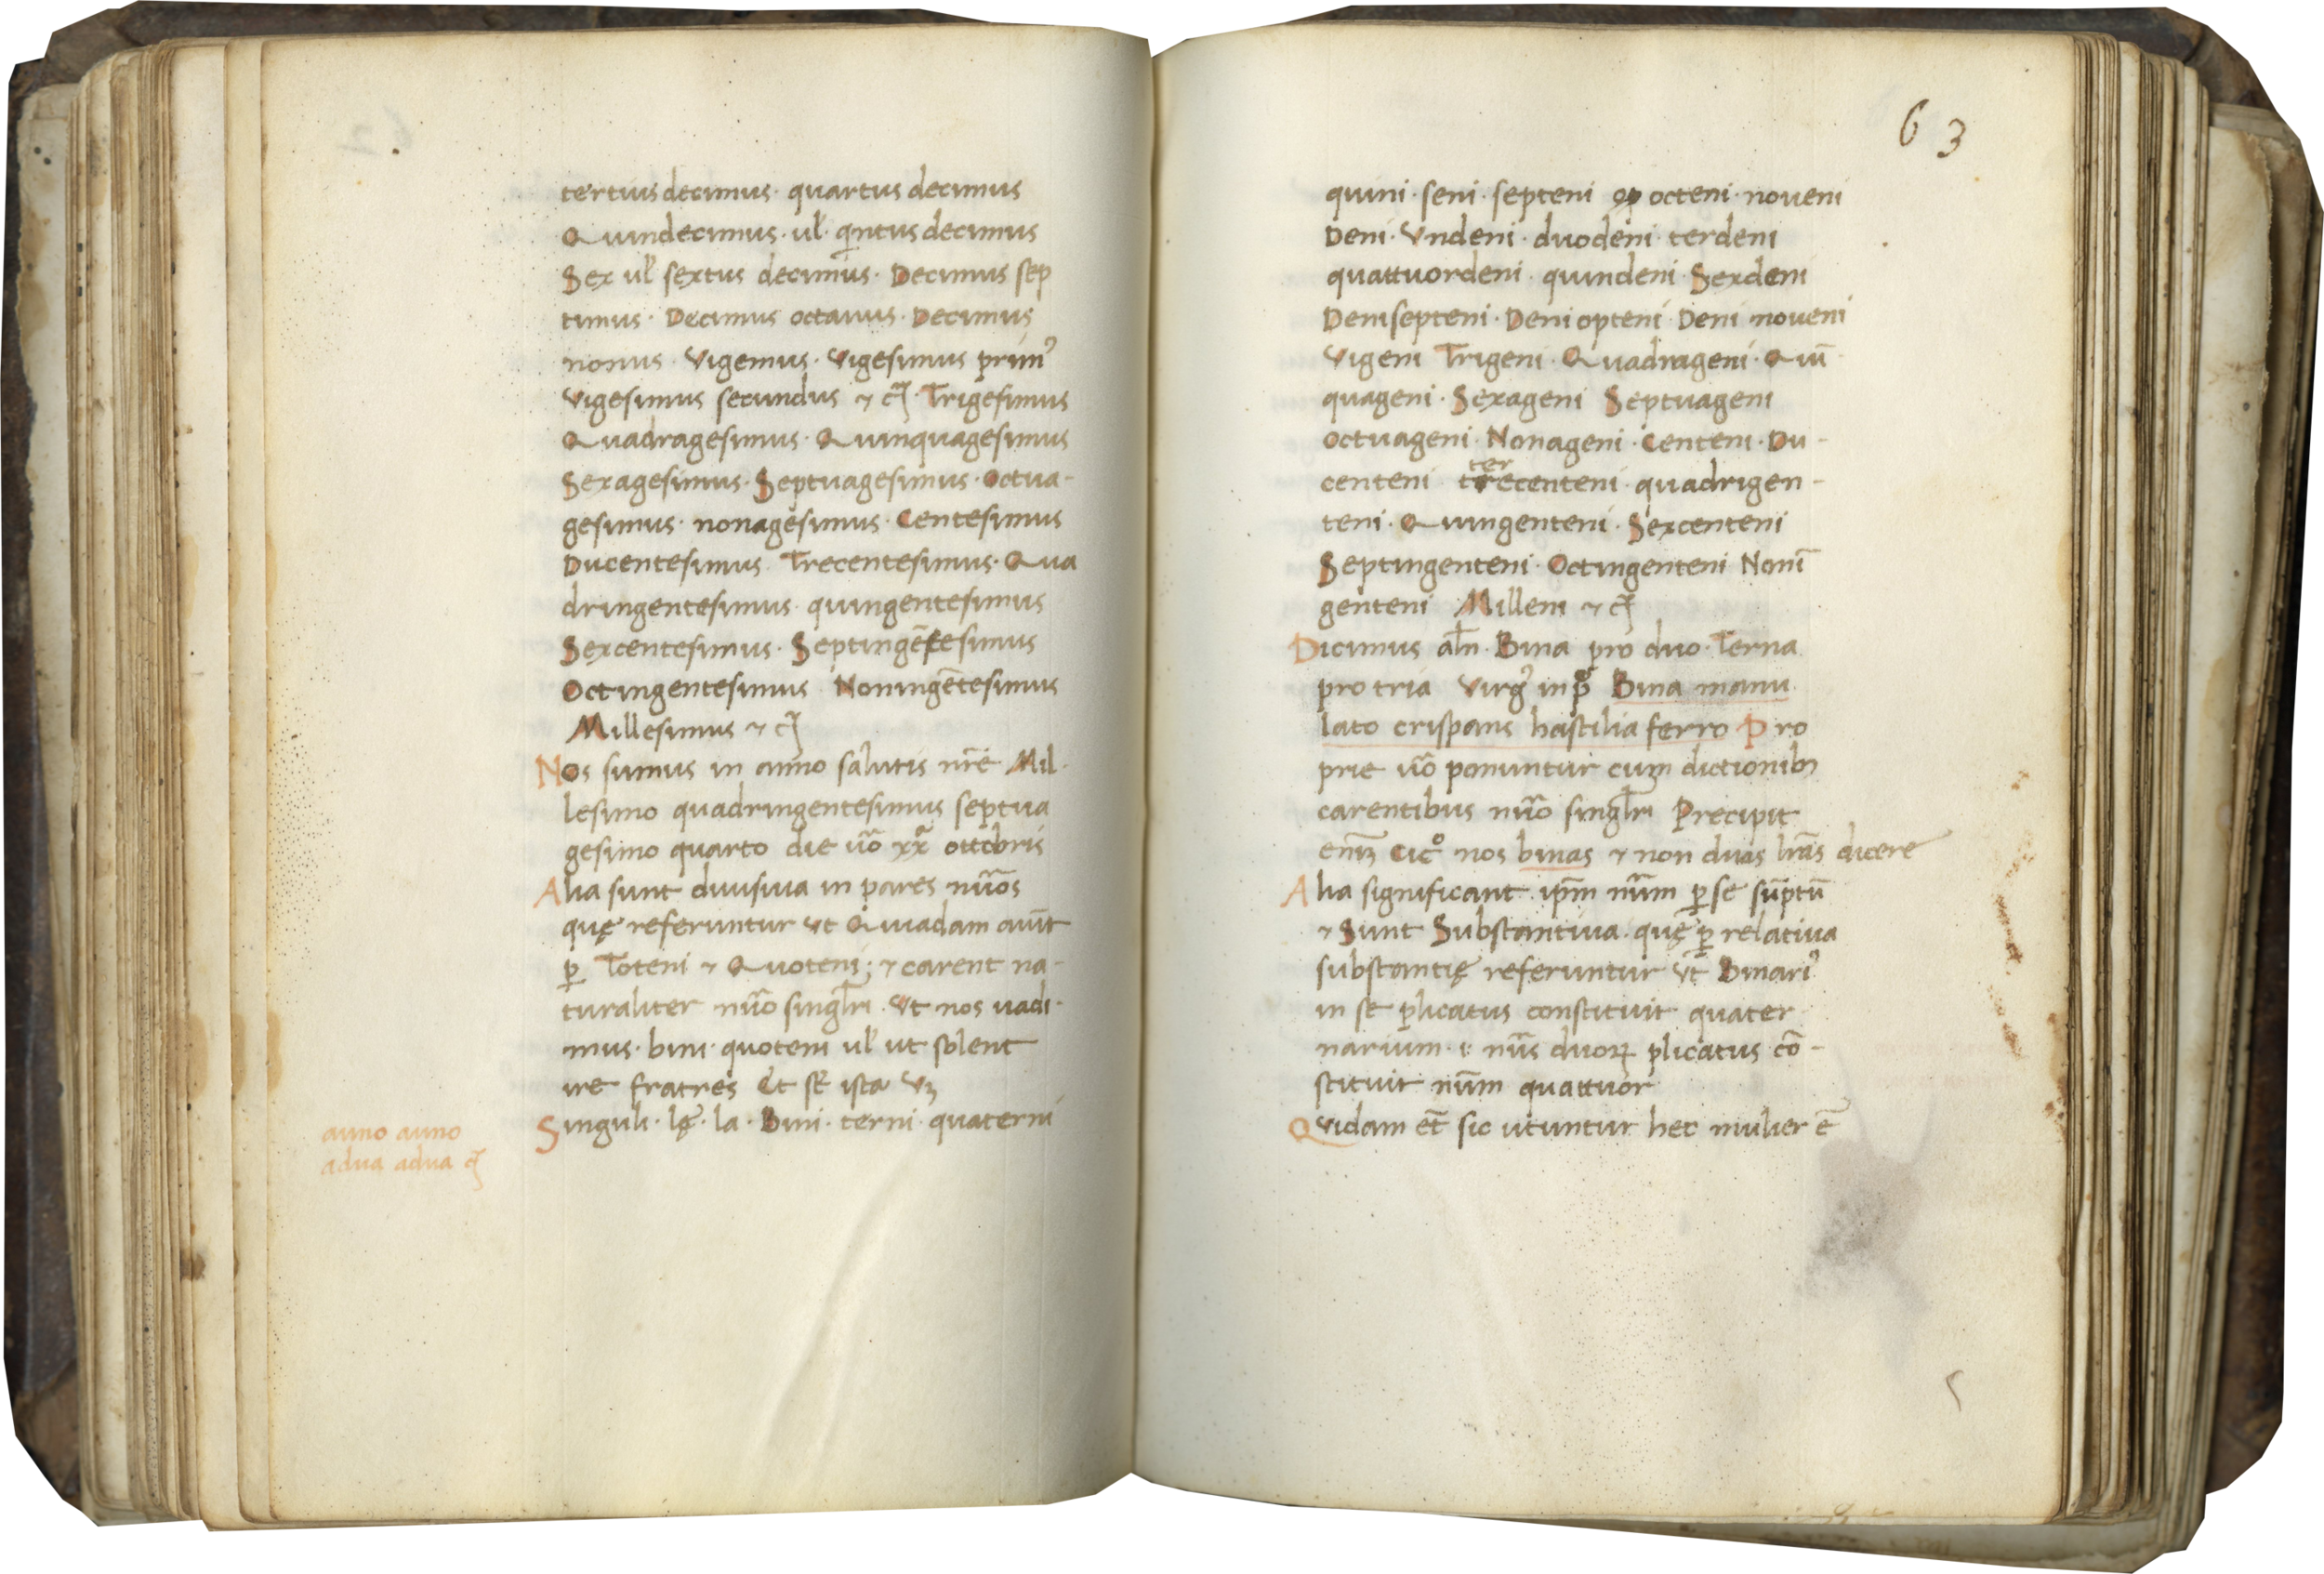 tertius decimus · quartus decimus
Quindecimus · ul' · qintus decimus
Sex ul' sextus decimus · Decimus sep
timus · Decimus octauus · Decimus
nonus · Vigemus · Vigesimus prim9
Vigesimus secundus ⁊ c̃ · Trigesimus
Quadragesimus · Quinquagesimus
Sexagesimus · Septuagesimus · Octua-
gesimus · nonagesimus · Centesimus
Ducentesimus Trecentesimus · Qua
dringentesimus · quingentesimus
Sexcentesimus · Septingētesimus
Octingentesimus · Noningētesimus
Millesimus ⁊ c̃
Nos sumus in anno salutis nr̃e Mil-
lesimo quadringentesimus septua
gesimo quarto die ũo xxª ottobris
Alia sunt diuisiua in pares nũos
quę referuntur ut Quiadam aiũt
ꝑ Toteni ⁊ Quoteni; ⁊ carent na-
turaliter nũo singlr̃i · Ut nos uadi-
mus · bini · quoteni ul' ut solent
ire fratres Et sē ista Vꝫ
anno anno
adua adua c̃
Singuli · lę · la · Bini · terni · quaterni
63
quini · seni · septeni op octeni · noueni
Deni · Vndeni · duodeni · terdeni
quattuordeni · quindeni · Sexdeni
Denisepteni · Deni opteni · Deni noueni
Vigeni Trigeni · Quadrageni · Quī
quageni · Sexageni Septuageni
octuageni · Nonageni · Centeni · Du-
ter
centeni trecenteni · quadrigen-
teni · Quingenteni · Sexcenteni
Septingenteni · Octingenteni Nonī
genteni Milleni ⁊ c̃
Dicimus alr̃ · Bina pro duo · Terna
pro tria Virg9 in pº Bina manu
lato crispans hastilia ferro Pro
prie ũo ponuntur cum dictionibꝫ
carentibus nũo singlr̃i Precipit
enīꝫ Cicº nos binas ⁊ non duas lrãs dicere
Alia significant ip̄m nũm ꝑ se sūptū
⁊ Sunt Substantiua · quę ꝑ relatiua
substantię referuntur ut Binari9
in se plicatus constituit quater
narium · i · nũs duoꝝ plicatus cō-
stituit nūm quattuor
Quidam et̄ sic utuntur hec mulier ē